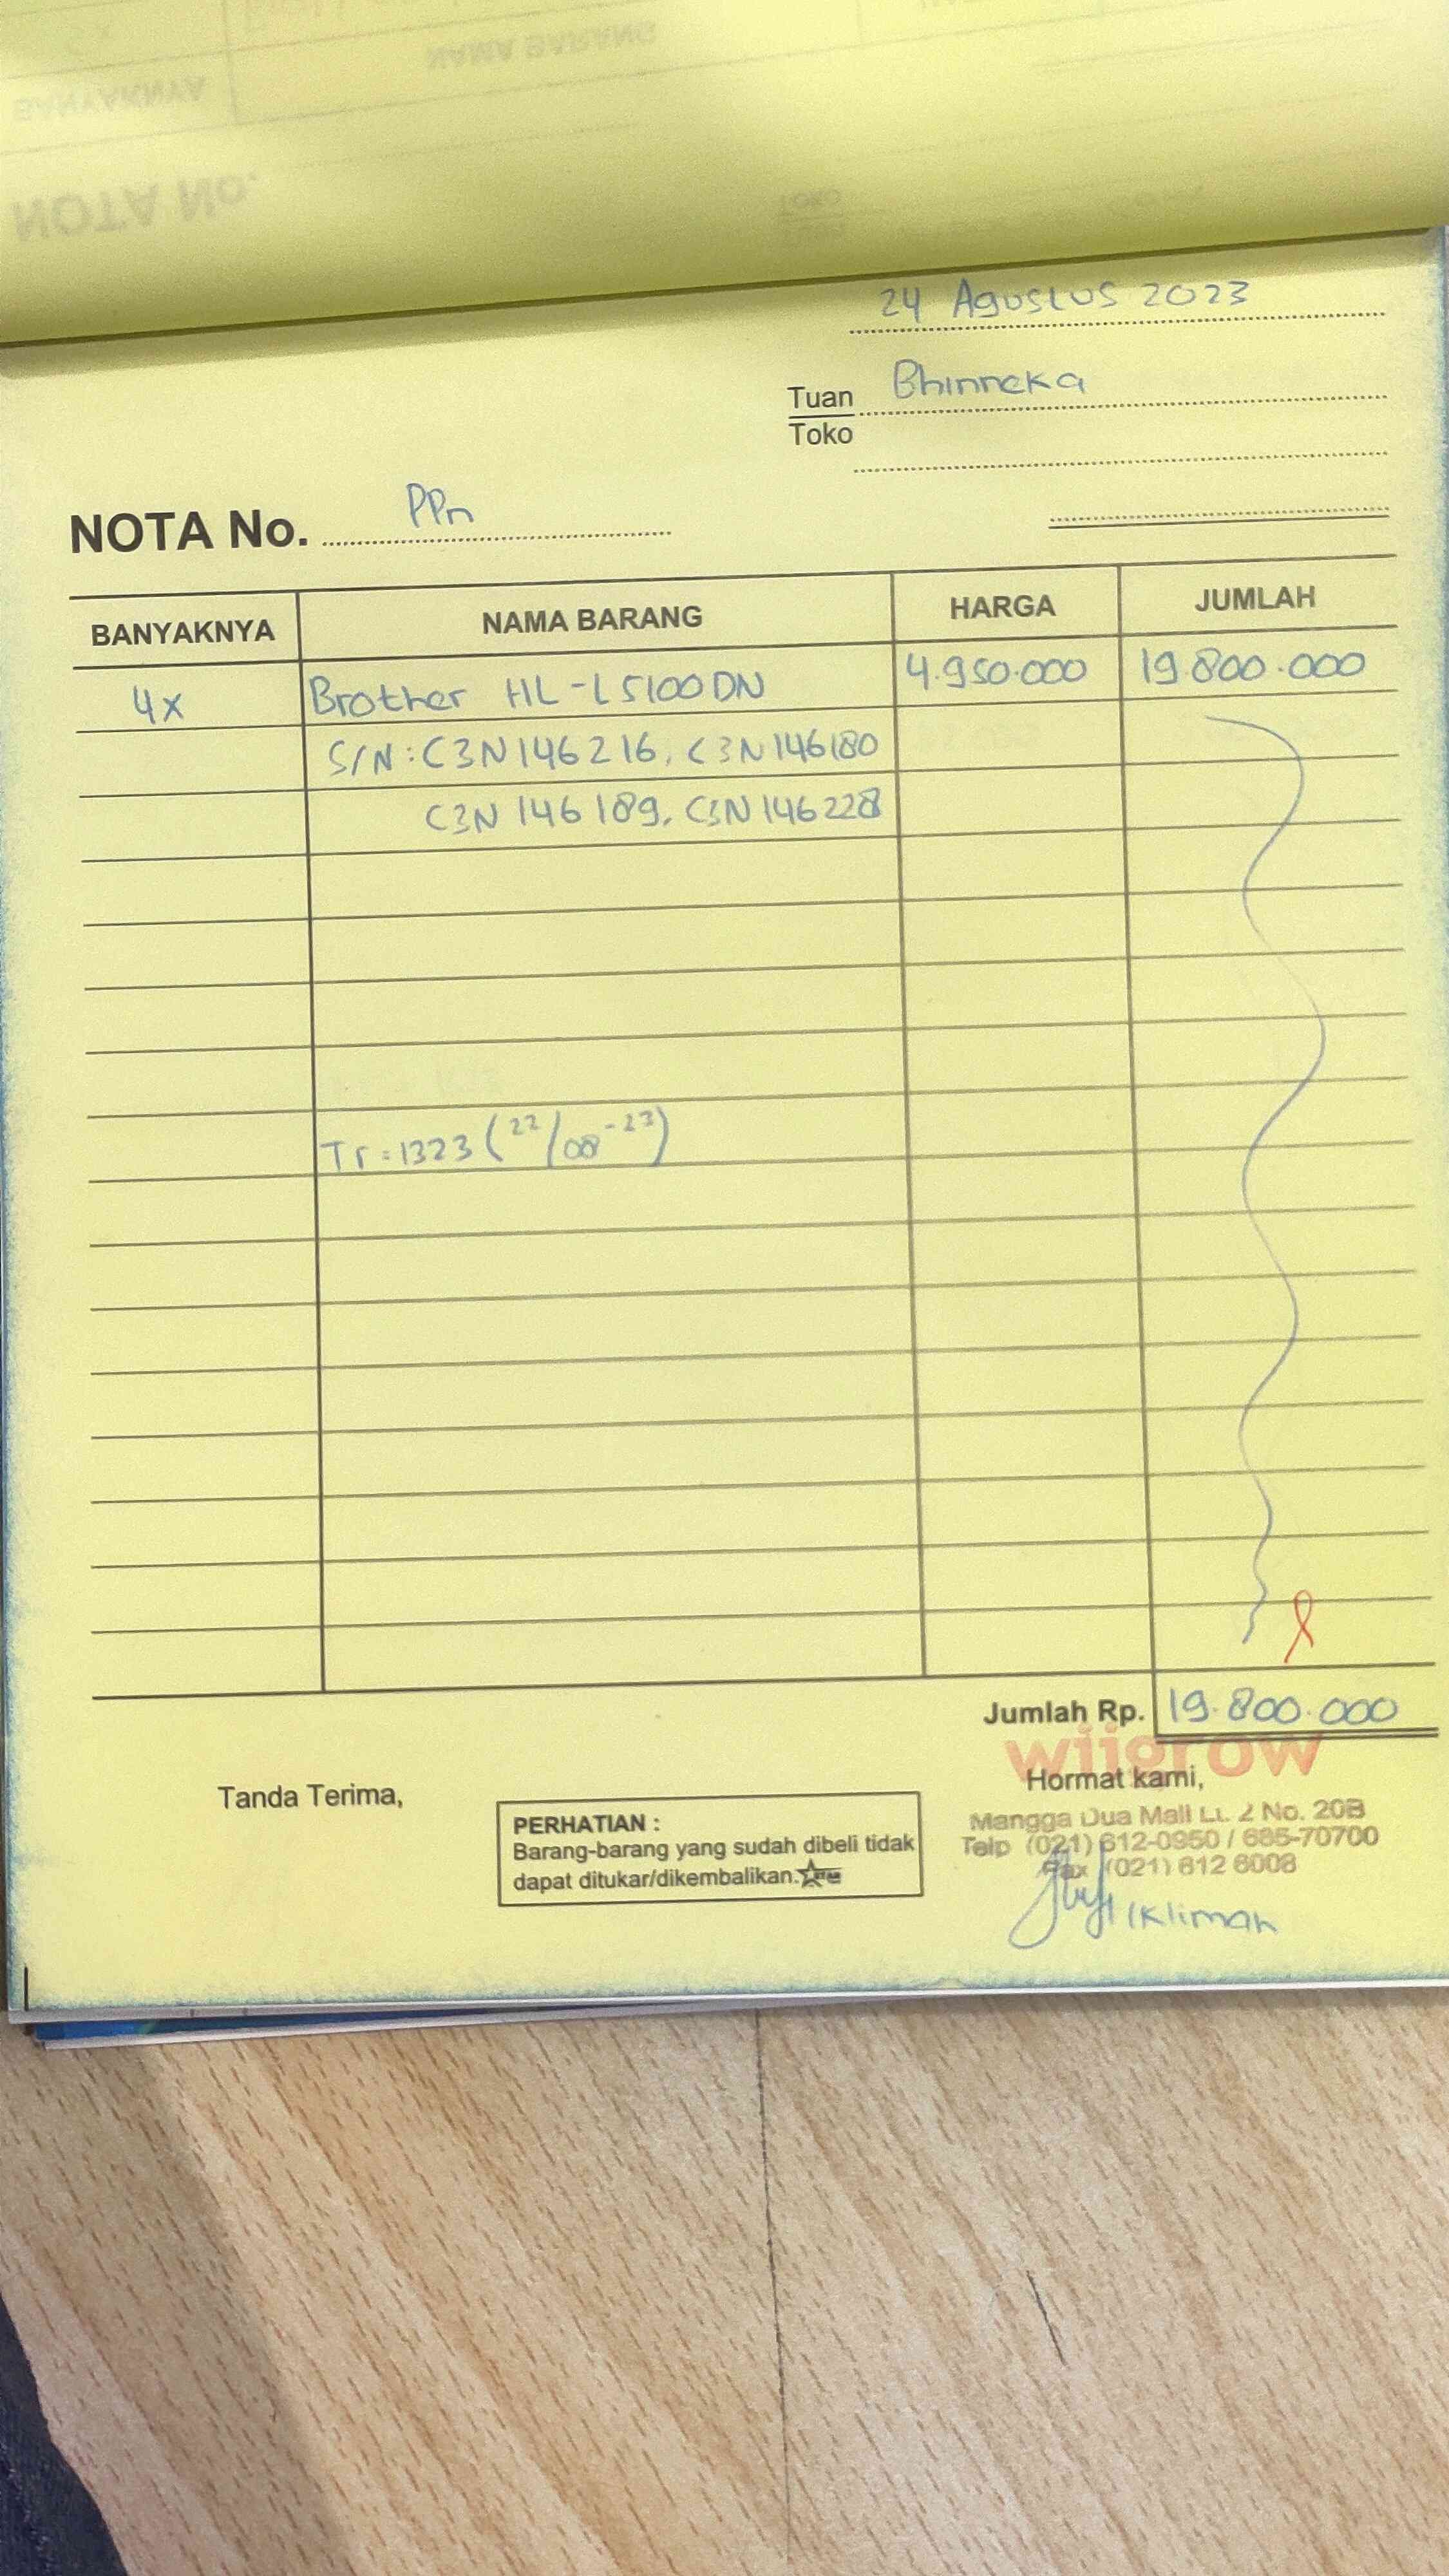 BANYAKNYA
NAMA BARANG
NOTA No.
TOKO
24 Agustus 2023
Tuan Bhinneka
Toko
NOTA No. PPn
BANYAKNYA NAMA BARANG HARGA JUMLAH
4x Brother HL-L5100DN 4.950.000 19.800.000
S/N: C3N146216, C3N146180
C3N146189, C3N146228
Tr: 1323 (22/08-23)
Jumlah Rp. 19.800.000
wijgrow
Tanda Terima,
Hormat kami,
PERHATIAN :
Barang-barang yang sudah dibeli tidak
dapat ditukar/dikembalikan.
Mangga Dua Mall Lt. 2 No. 20B
Telp (021) 612-0950 / 685-70700
Fax (021) 612 6008
Iklimah